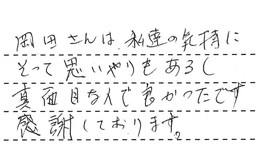 岡田さんは、私達の気持に
そって思いやりもあるし
真面目な人で良かったです
感謝しております。